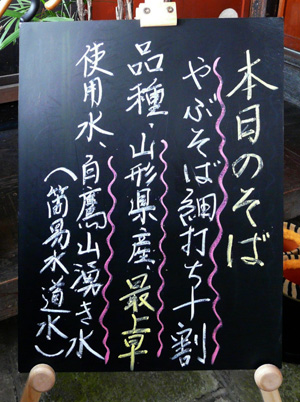 本日のそば
やぶそば細打ち十割
品種、山形県産、最上早
使用水、白鷹山湧き水
(箇易水道水)